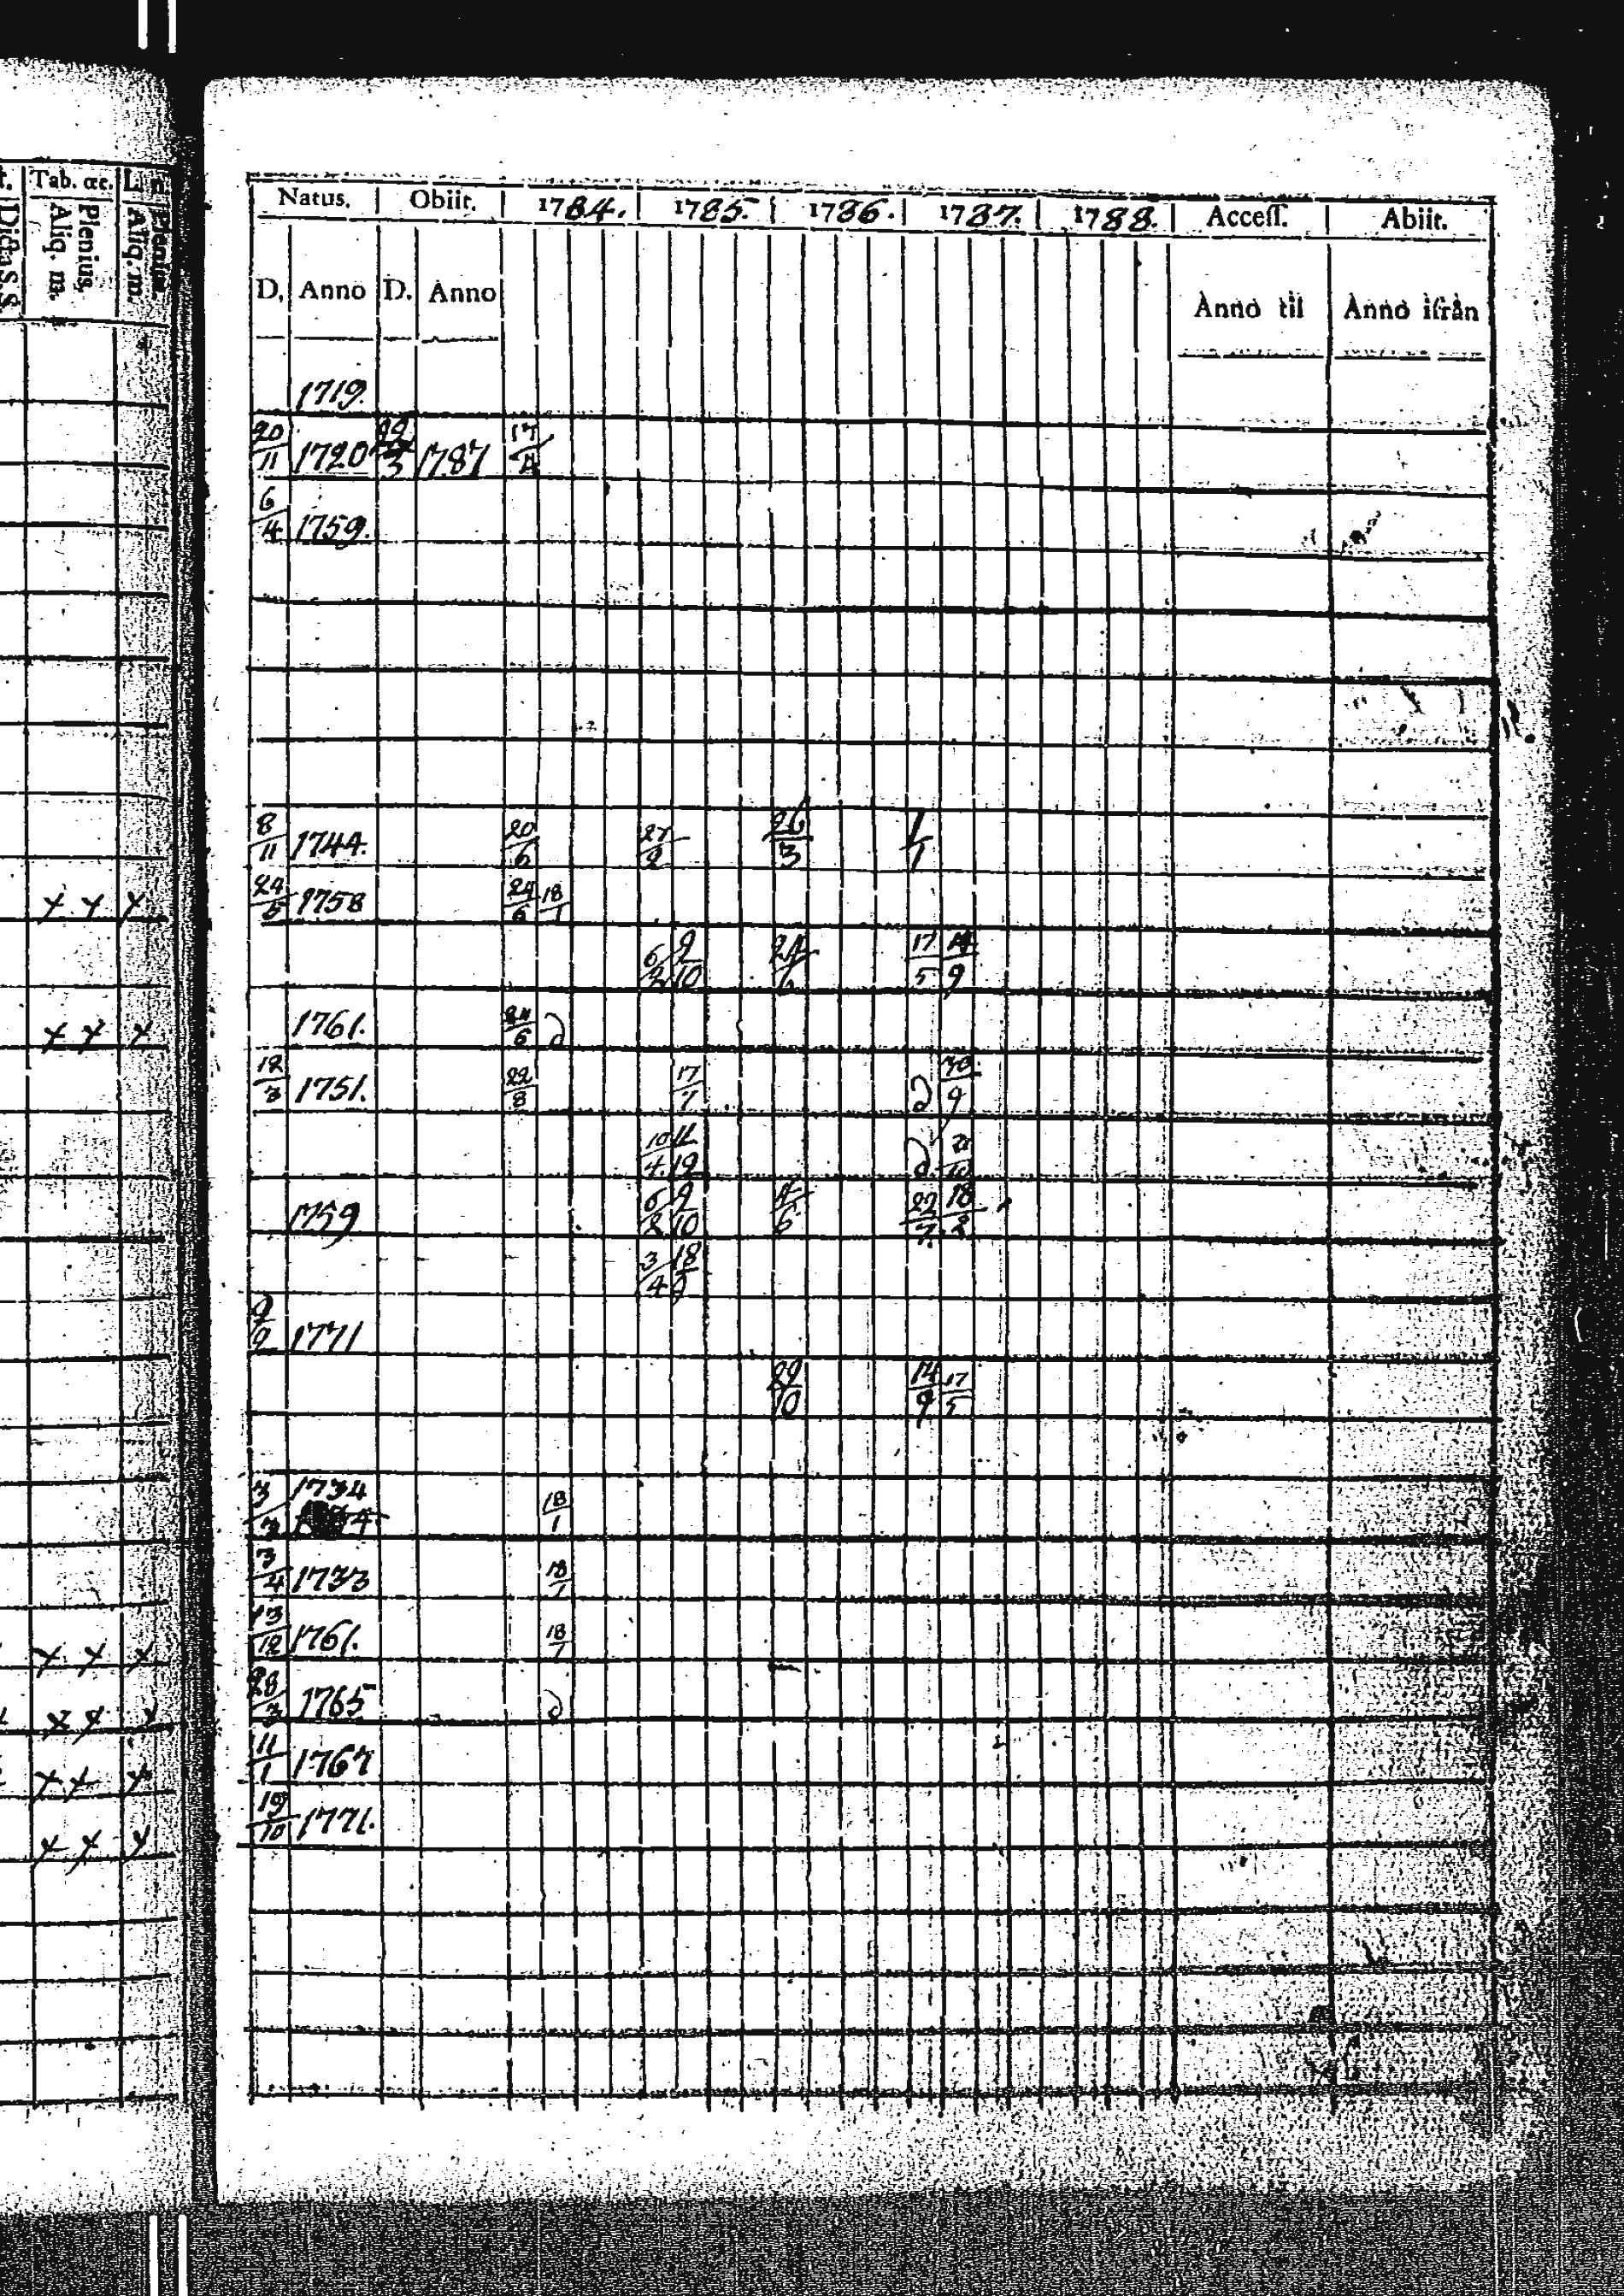 t. Tab. œc. L. n.
Dicta S. S. Aliq. m. Plenius. Aliq. m. Plenius.
Natus. Obiit. 1784. 1785. 1786. 1787. 1788. Access. Abiit.
D. Anno D. Anno Anno til Anno ifrån
1719.
20/11 1720 /3 1787 17/4
6/4 1759.
8/11 1744. 20/6 27/2 26/3 1/1
24/5 1758 24/6 18/1
x x x
6/2 9/10 24/6 17/5 14/9
1761. 24/6 d
x x x
12/3 1751. 22/8 17/7 d 30/9
10/4 11/12 d
1759 6/2 9/10 /6 22/7 18/2
3/4 18/9
9/9 1771
29/10 14/9 17/5
3/3 1734 18/1
3/4 1733 18/1
13/12 1761. 18/1
x x x
28/3 1765 d
x x x
11/1 1767
x x x
19/10 1771.
x x x